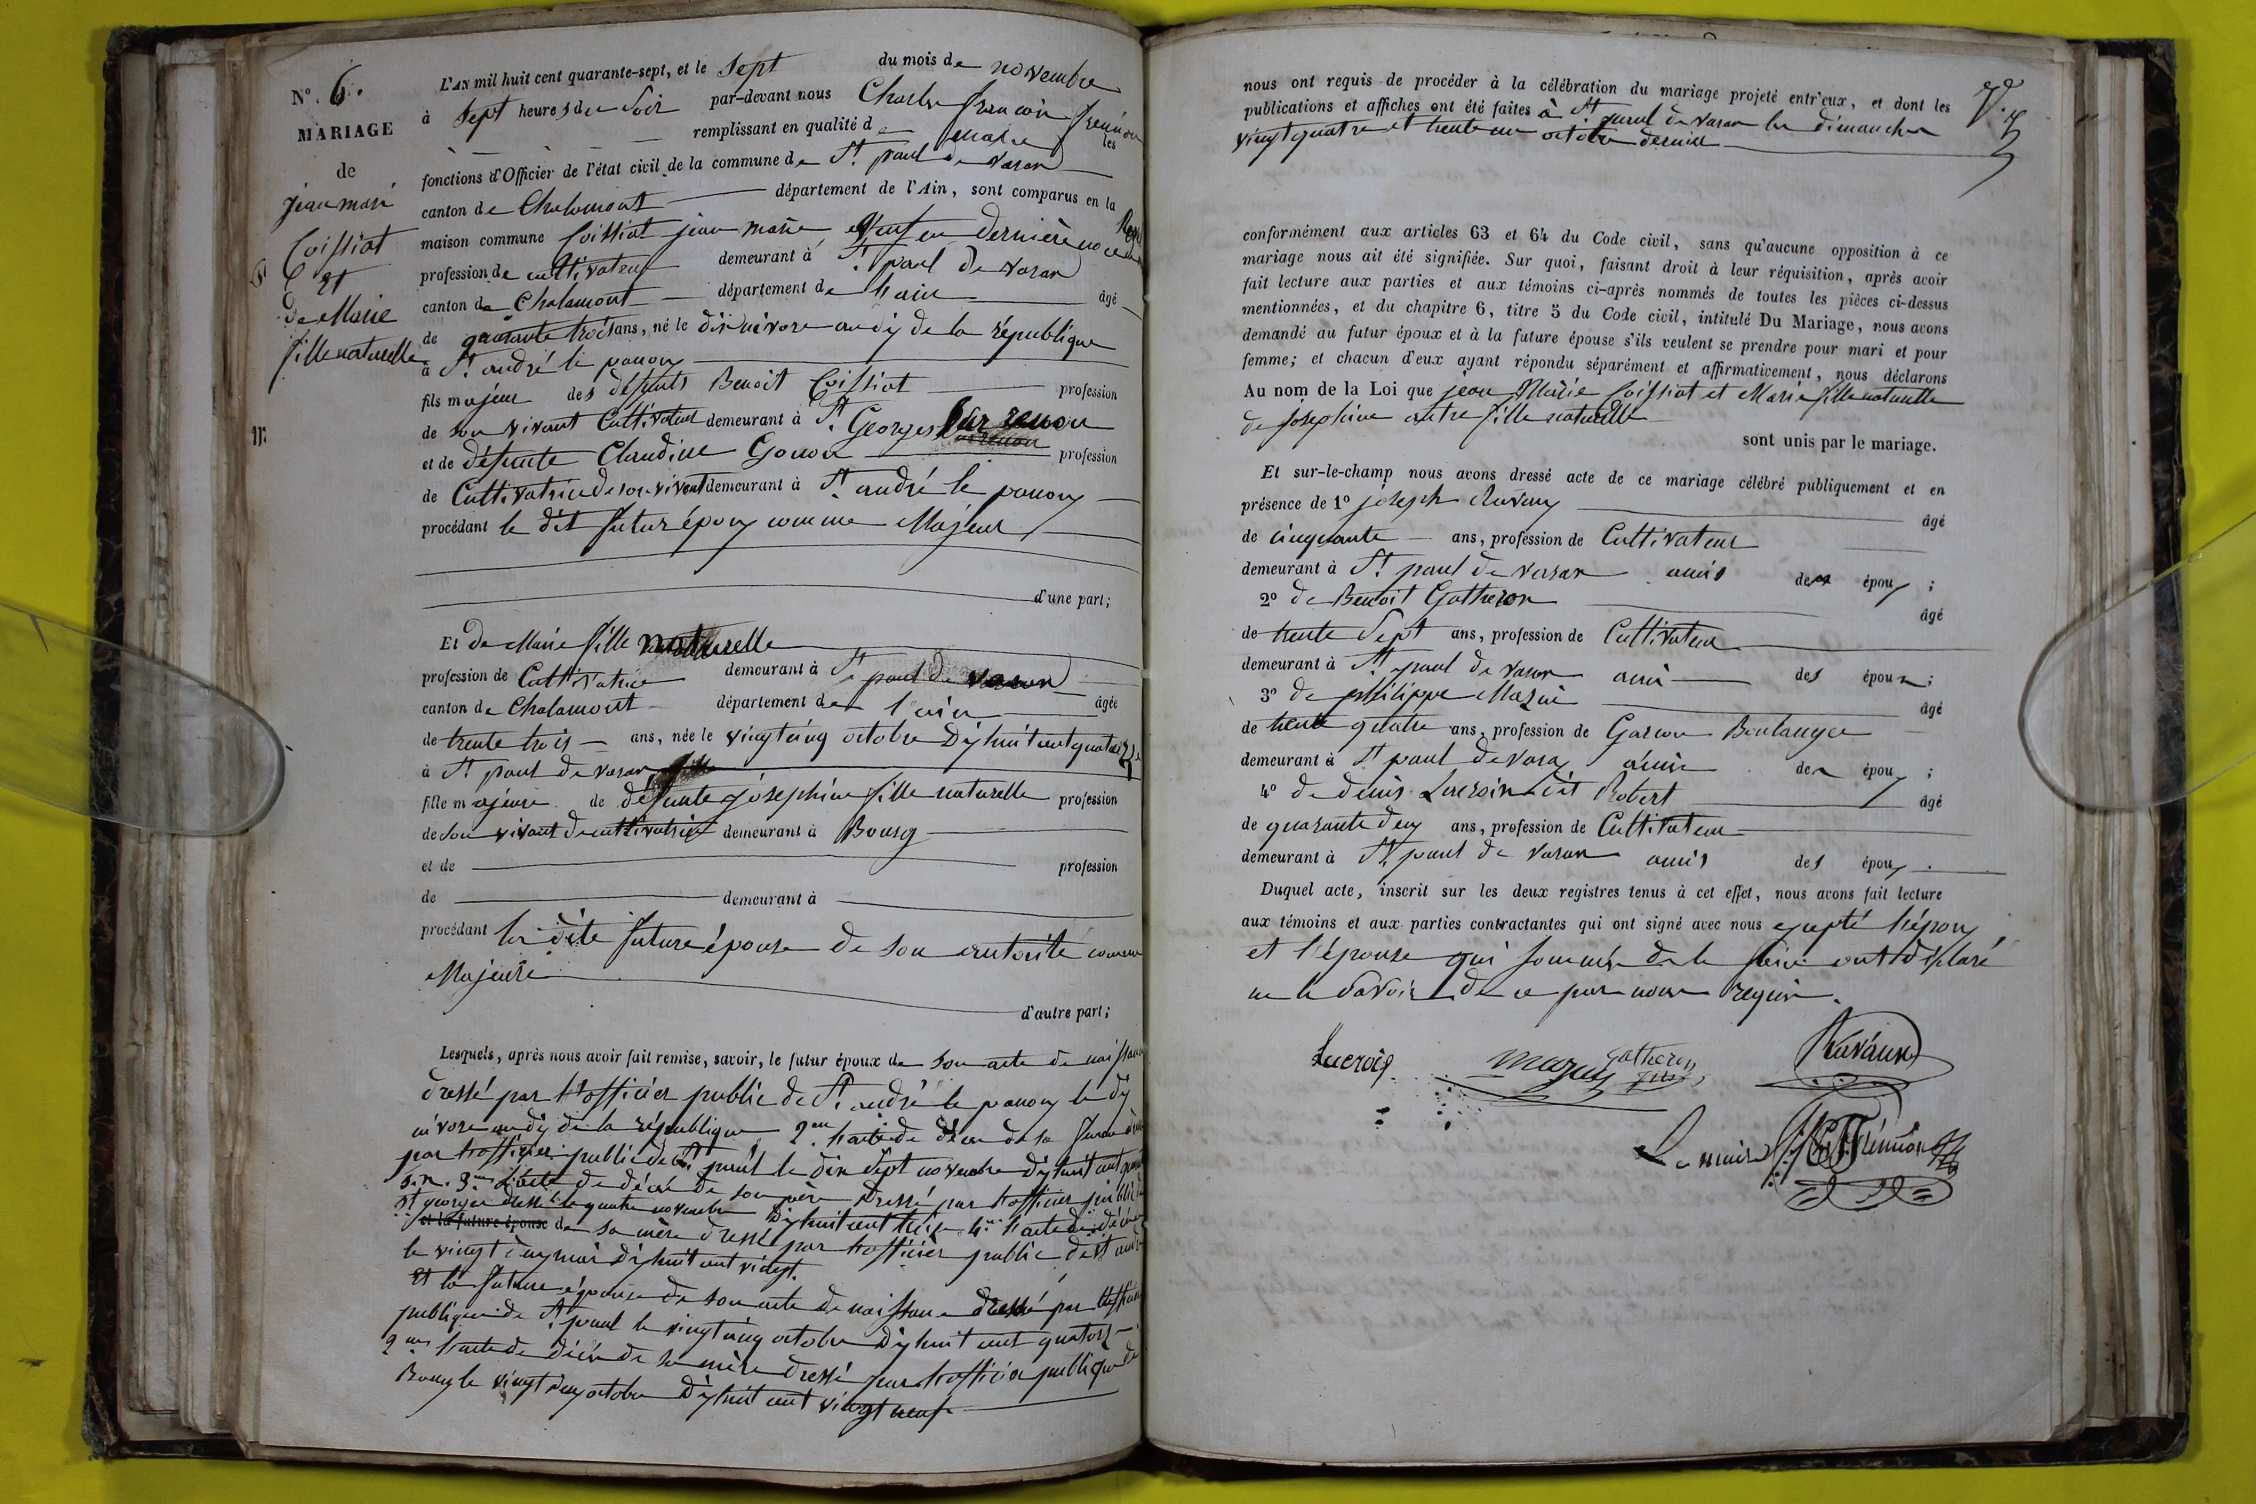 N.o 6.
MARIAGE
de
jean marie
Coissiat
Et
de Marie
fille naturelle
L'AN mil huit cent quarante-sept, et le Sept du mois de novembre
à Sept heures du Soir par-devant nous Charles françois
remplissant en qualité de Maire les
fonctions d'Officier de l'état civil de la commune de St paul de varax
canton de Chalamont département de l'Ain, sont comparus en la
maison commune Coissiat jean marie Veuf en dernière noce
profession de cultivateur demeurant à St paul de varax
canton de Chalamont département de l'ain âgé
de quarante trois ans, né le dix nivose an dix de la république
à St andré le panoux
fils majeur des défunts Benoit Coissiat profession
de son vivant Cultivateur demeurant à St Georges Sur renon
et de défunte Claudine Gonon profession
de Cultivatrice de son vivant demeurant à St andré le panoux
procédant le dit futur époux comme Majeur
d'une part;
Et de Marie fille naturelle
profession de Cultivatrice demeurant à St paul de varax
canton de Chalamont département de l'ain âgée
de trente trois ans, née le vingt cinq octobre dix huit cent quatorze
à St paul de varax
fille majeure de défunte joséphine fille naturelle profession
de son vivant de cultivatrice demeurant à Bourg
et de profession
de demeurant à
procédant la dite future épouse de son autorité comme
Majeure
d'autre part;
Lesquels, après nous avoir fait remise, savoir, le futur époux de son acte de naissance
dressé par l'officier public de St andré le panoux le dix
nivose an dix de la république 2me l'acte de décès de sa
par l'officier public de St paul le dix sept novembre dix huit cent
3me l'acte de décès de son père dressé par l'officier public de
St georges le quatre novembre dix huit cent treize 4me l'acte de décès
et la future épouse de sa mère dressé par l'officier public de St andré
le vingt cinq mai dix huit cent vingt.
Et la future épouse de son acte de naissance dressé par l'officier
publique de St paul le vingt cinq octobre dix huit cent quatorze
2me l'acte de décès de sa mère dressé par l'officier publique de
Bourg le vingt deux octobre dix huit cent vingt neuf
nous ont requis de procéder à la célébration du mariage projeté entr'eux, et dont les
publications et affiches ont été faites à St paul de varax les dimanches
vingt quatre et trente un octobre dernier
conformément aux articles 63 et 64 du Code civil, sans qu'aucune opposition à ce
mariage nous ait été signifiée. Sur quoi, faisant droit à leur réquisition, après avoir
fait lecture aux parties et aux témoins ci-après nommés de toutes les pièces ci-dessus
mentionnées, et du chapitre 6, titre 5 du Code civil, intitulé Du Mariage, nous avons
demandé au futur époux et à la future épouse s'ils veulent se prendre pour mari et pour
femme; et chacun d'eux ayant répondu séparément et affirmativement, nous déclarons
Au nom de la Loi que jean Marie Coissiat et Marie fille naturelle
de joséphine autre fille naturelle
sont unis par le mariage.
Et sur-le-champ nous avons dressé acte de ce mariage célébré publiquement et en
présence de 1o joseph Ravaux âgé
de cinquante ans, profession de Cultivateur
demeurant à St paul de varax amis des époux;
2o de Benoit Gatheron âgé
de trente Sept ans, profession de Cultivateur
demeurant à St paul de varax ami des époux;
3o de philippe Mazui âgé
de trente quatre ans, profession de Garcon Boulanger
demeurant à St paul de varax amis des époux;
4o de denis Lucroix dit Robert âgé
de quarante deux ans, profession de Cultivateur
demeurant à St paul de varax amis des époux.
Duquel acte, inscrit sur les deux registres tenus à cet effet, nous avons fait lecture
aux témoins et aux parties contractantes qui ont signé avec nous excepté l'époux
et l'épouse qui sommés de le faire ont déclaré
ne le savoir de ce par nous requis.
Lucroix Mazui Gatheron Ravaux
Le maire